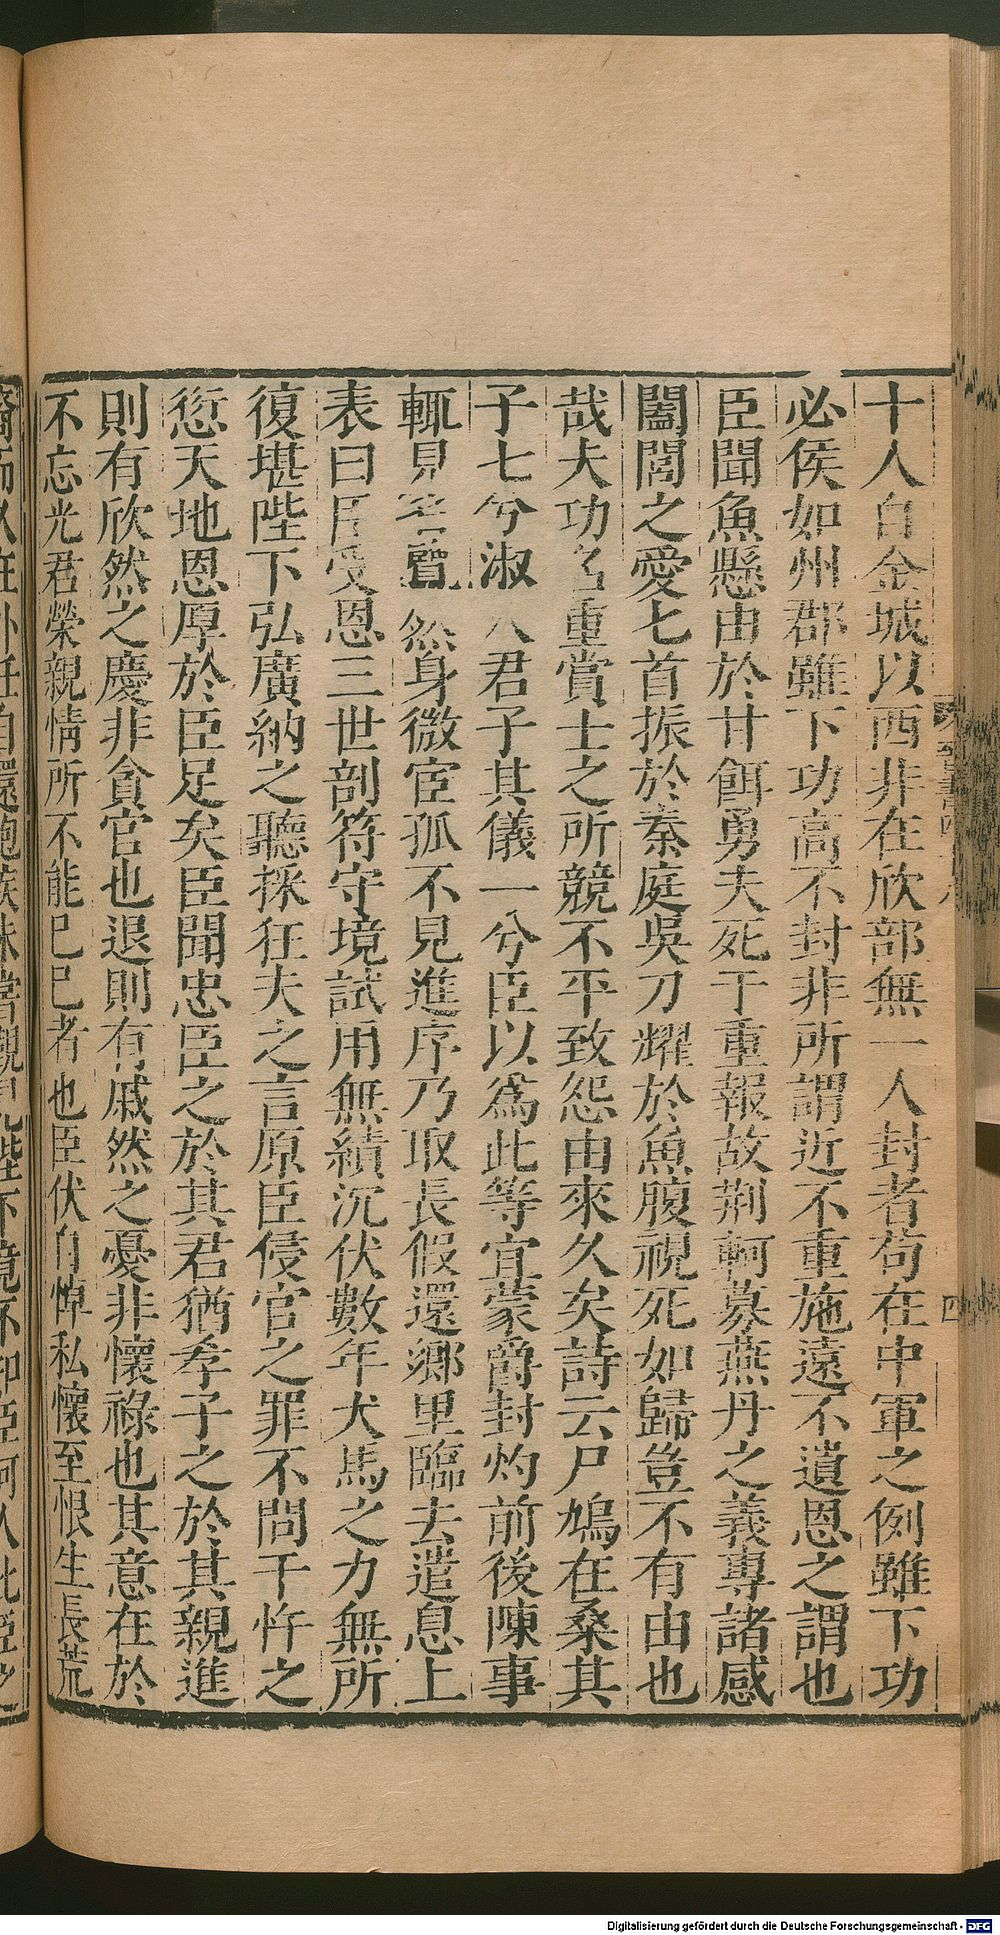 十人自金城以西非在欣部無一人封者苟在中軍之例雖下功
必侯如州郡雖下功高不封非所謂近不重施遠不遺恩之謂也
臣聞魚懸由於甘餌勇夫死于重報故荆軻慕燕丹之義專諸感
闔閭之愛匕首振於秦庭吳刀耀於魚腹視死如歸豈不有由也
哉夫功名重賞士之所競不平致怨由來久矣詩云尸鳩在桑其
子七兮淑人君子其儀一兮臣以為此等宜蒙爵封灼前後陳事
輒見省覽然身微宦孤不見進序乃取長假還鄉里臨去遣息上
表曰臣受恩三世剖符守境試用無績沉伏數年犬馬之力無所
復堪陛下弘廣納之聽採狂夫之言原臣侵官之罪不問干忤之
愆天地恩厚於臣足矣臣聞忠臣之於其君猶孝子之於其親進
則有欣然之慶非貪官也退則有戚然之憂非懷祿也其意在於
不忘光君榮親情所不能已已者也臣伏自悼私懷至恨生長荒
Digitalisierung gefördert durch die Deutsche Forschungsgemeinschaft - DFG